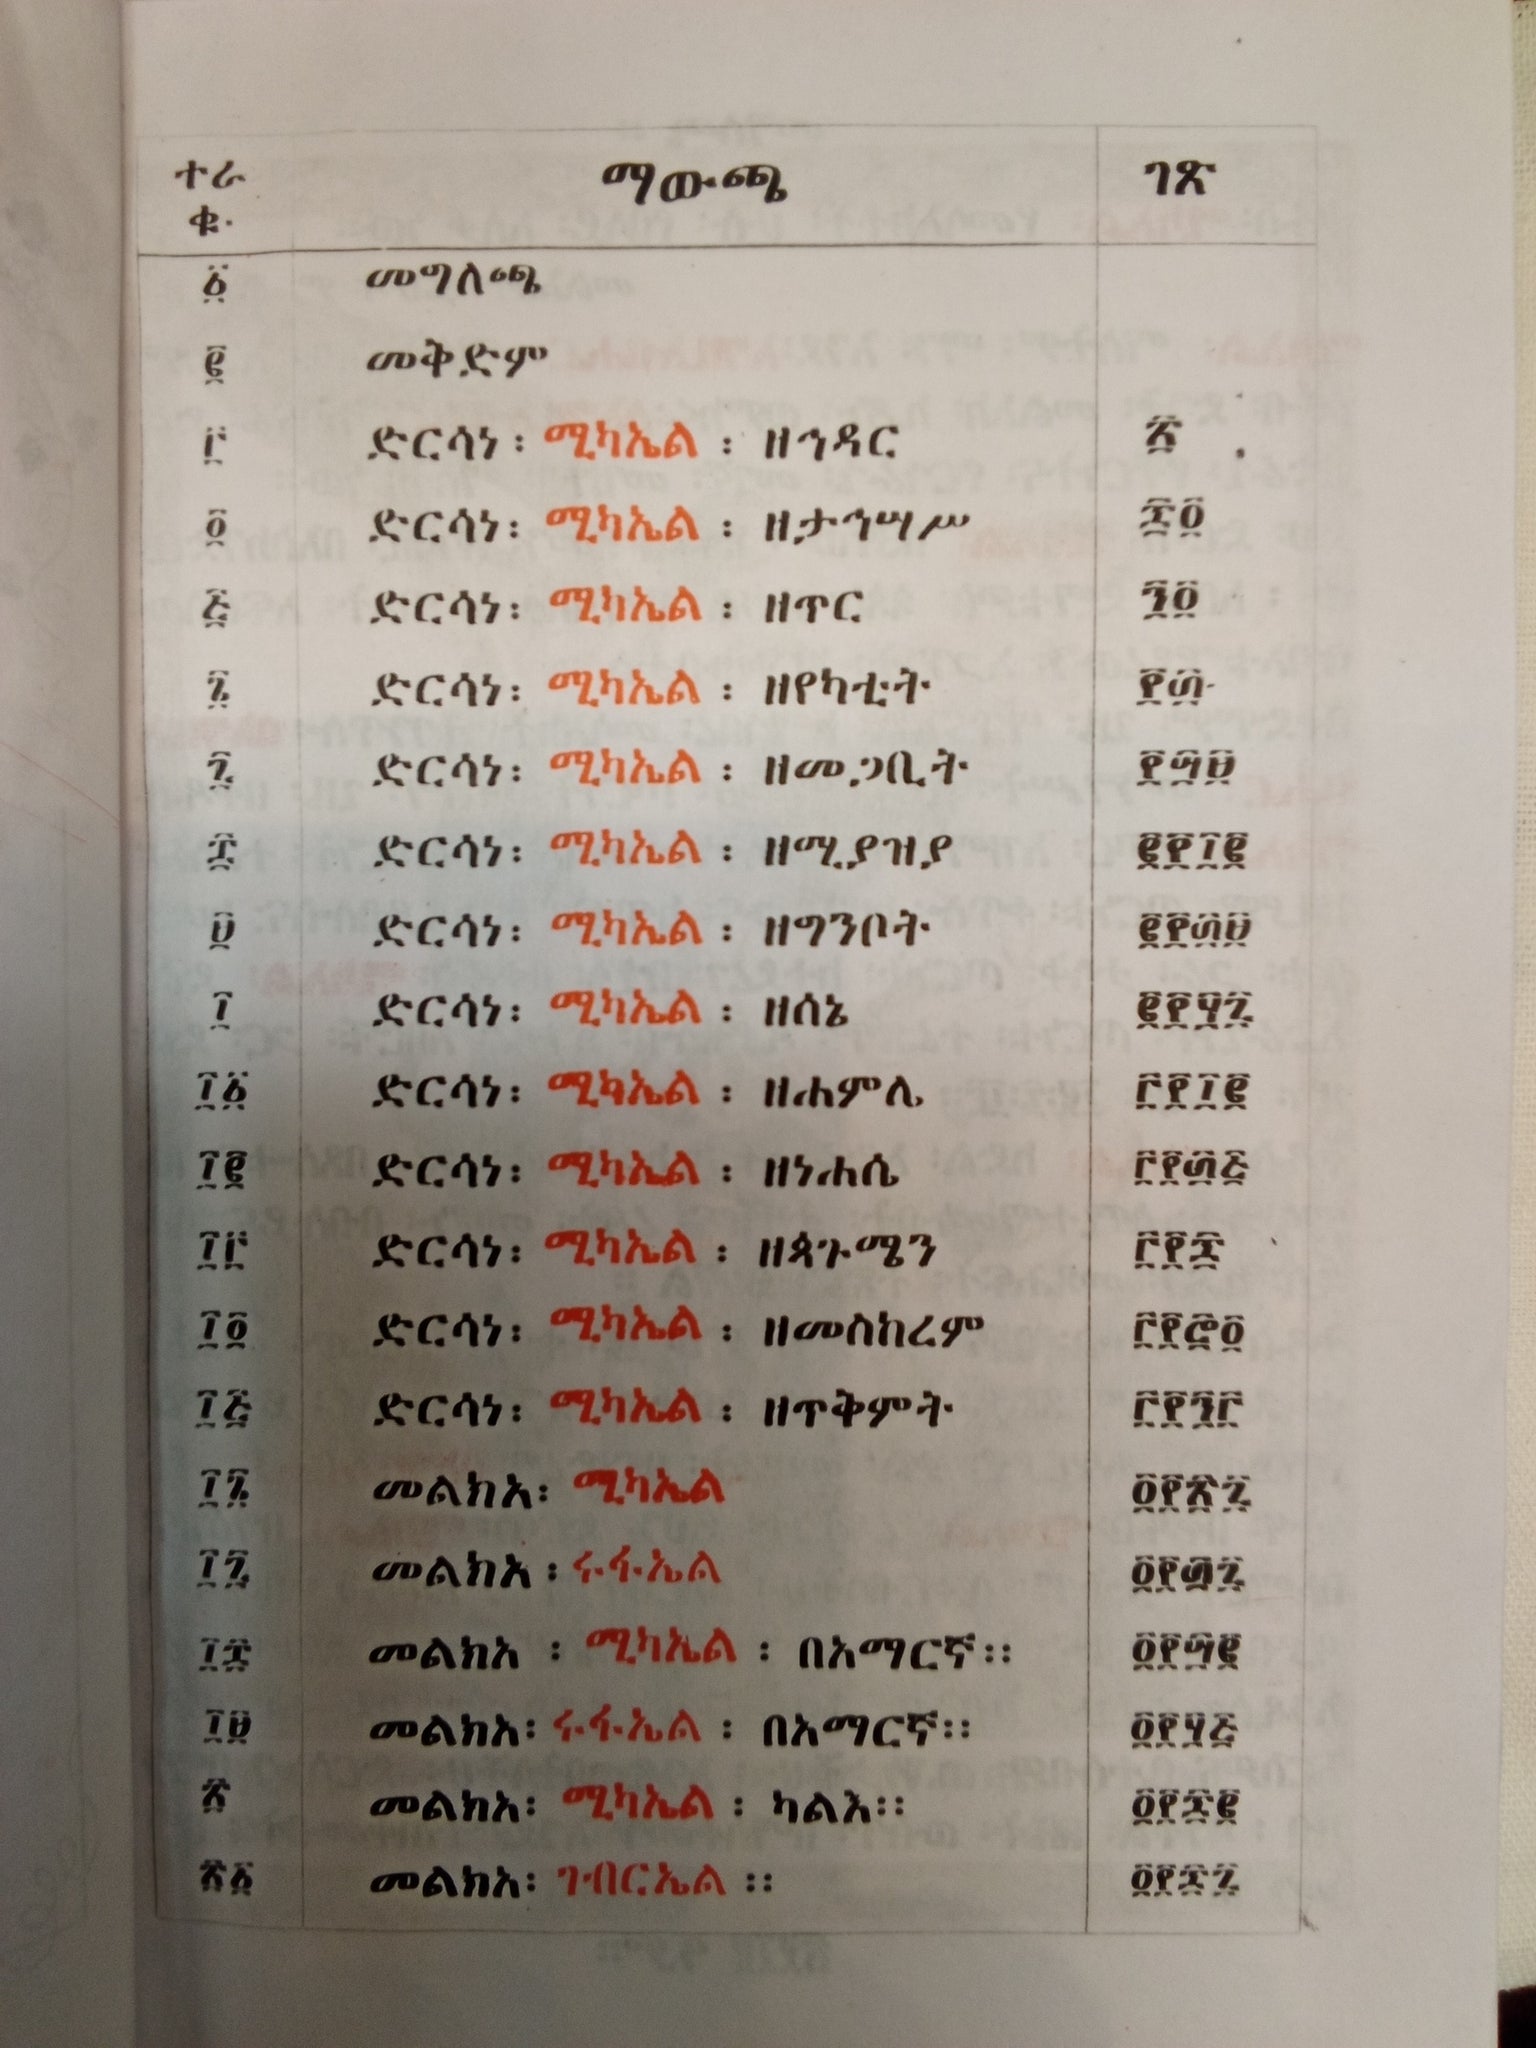 ተራ ቁ. ማውጫ ገጽ
፩ መግለጫ
፪ መቅድም
፫ ድርሳነ፡ ሚካኤል ፡ ዘኅዳር ፳
፬ ድርሳነ፡ ሚካኤል ፡ ዘታኅሣሥ ፷፬
፭ ድርሳነ፡ ሚካኤል ፡ ዘጥር ፺፬
፮ ድርሳነ፡ ሚካኤል ፡ ዘየካቲት ፻፴
፯ ድርሳነ፡ ሚካኤል ፡ ዘመጋቢት ፻፵፱
፰ ድርሳነ፡ ሚካኤል ፡ ዘሚያዝያ ፪፻፲፪
፱ ድርሳነ፡ ሚካኤል ፡ ዘግንቦት ፪፻፴፱
፲ ድርሳነ፡ ሚካኤል ፡ ዘሰኔ ፪፻፶፯
፲፩ ድርሳነ፡ ሚካኤል ፡ ዘሐምሌ ፫፻፲፪
፲፪ ድርሳነ፡ ሚካኤል ፡ ዘነሐሴ ፫፻፴፭
፲፫ ድርሳነ፡ ሚካኤል ፡ ዘጳጉሜን ፫፻፷
፲፬ ድርሳነ፡ ሚካኤል ፡ ዘመስከረም ፫፻፸፬
፲፭ ድርሳነ፡ ሚካኤል ፡ ዘጥቅምት ፫፻፺፫
፲፮ መልክአ፡ ሚካኤል ፬፻፳፯
፲፯ መልክአ፡ ሩፋኤል ፬፻፴፯
፲፰ መልክአ ፡ ሚካኤል ፡ በአማርኛ፡፡ ፬፻፵፪
፲፱ መልክአ፡ ሩፋኤል ፡ በአማርኛ፡፡ ፬፻፶፭
፳ መልክአ፡ ሚካኤል ፡ ካልእ፡፡ ፬፻፷፪
፳፩ መልክአ፡ ገብርኤል ፡፡ ፬፻፷፯